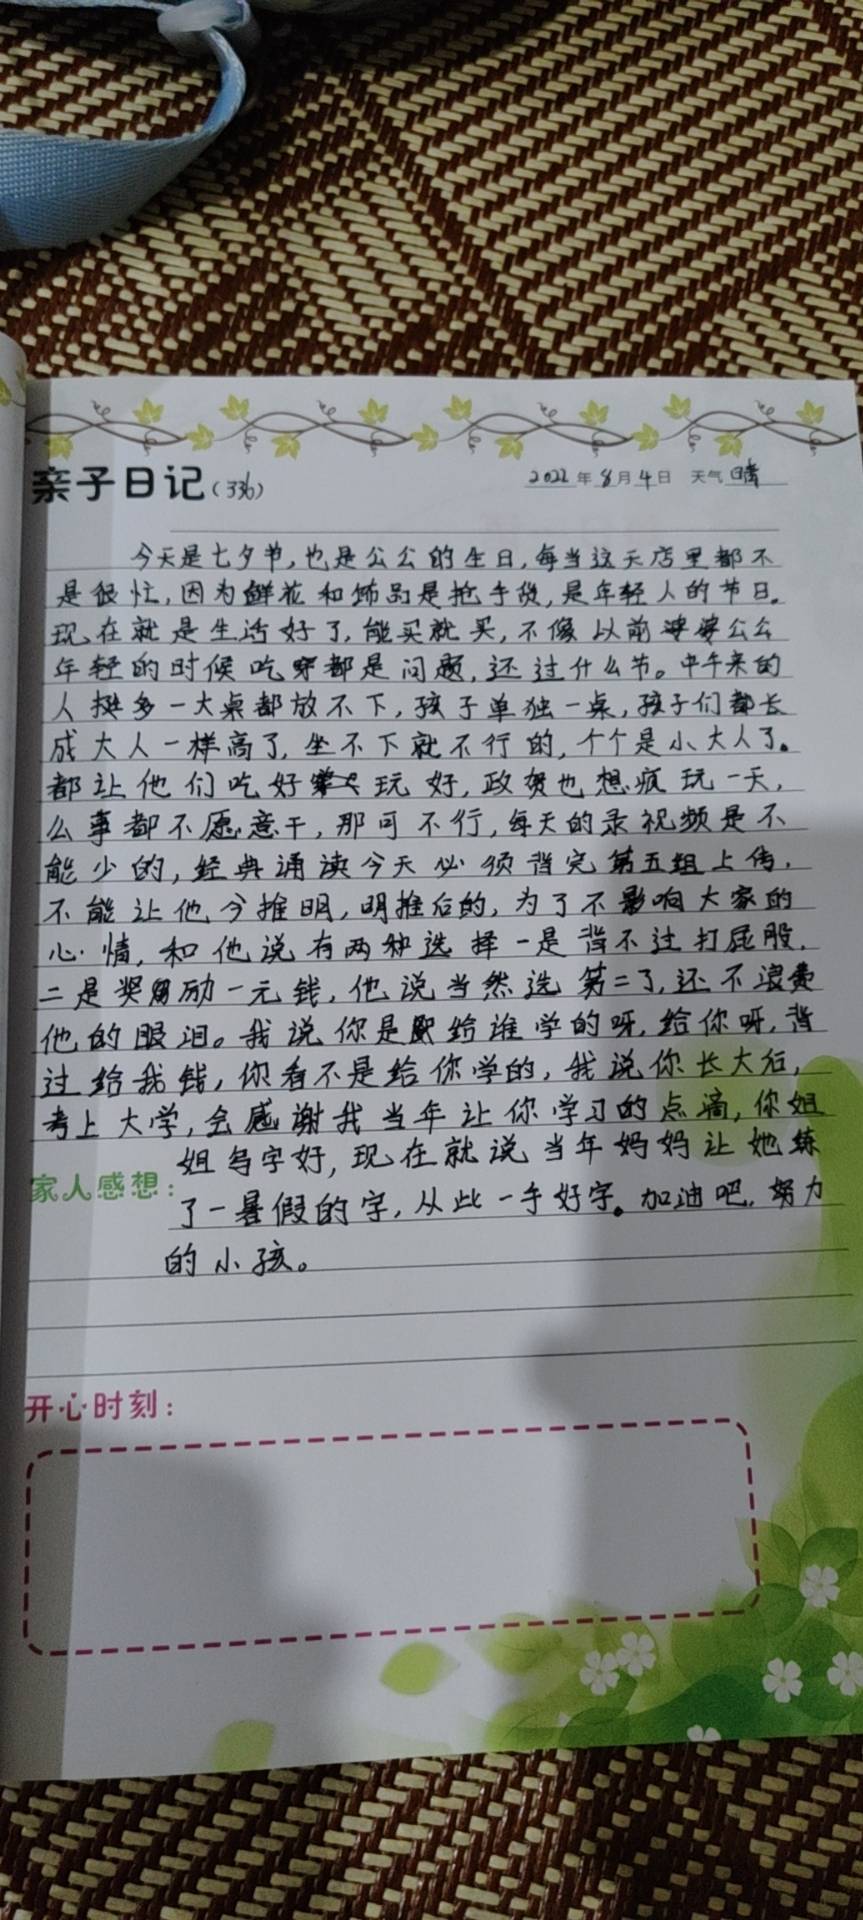 亲子日记(336) 2022年8月4日 天气 晴
今天是七夕节,也是公公的生日,每当这天店里都不
是很忙,因为鲜花和饰品是抢手货,是年轻人的节日。
现在就是生活好了,能买就买,不像以前婆婆公公
年轻的时候吃穿都是问题,还过什么节。中午来的
人挺多一大桌都放不下,孩子单独一桌,孩子们都长
成大人一样高了,坐不下就不行的,个个是小大人了。
都让他们吃好玩好,政贺也想疯玩一天,
么事都不愿意干,那可不行,每天的录视频是不
能少的,经典诵读今天必须背完第五组上传,
不能让他今推明,明推后的,为了不影响大家的
心情,和他说有两种选择一是背不过打屁股,
二是奖励一元钱,他说当然选第二了,还不浪费
他的眼泪。我说你是给谁学的呀,给你呀,背
过给我钱,你看不是给你学的,我说你长大后,
考上大学,会感谢我当年让你学习的点滴,你姐
姐写字好,现在就说当年妈妈让她练
家人感想:
了一暑假的字,从此一手好字。加油吧,努力
的小孩。
开心时刻: